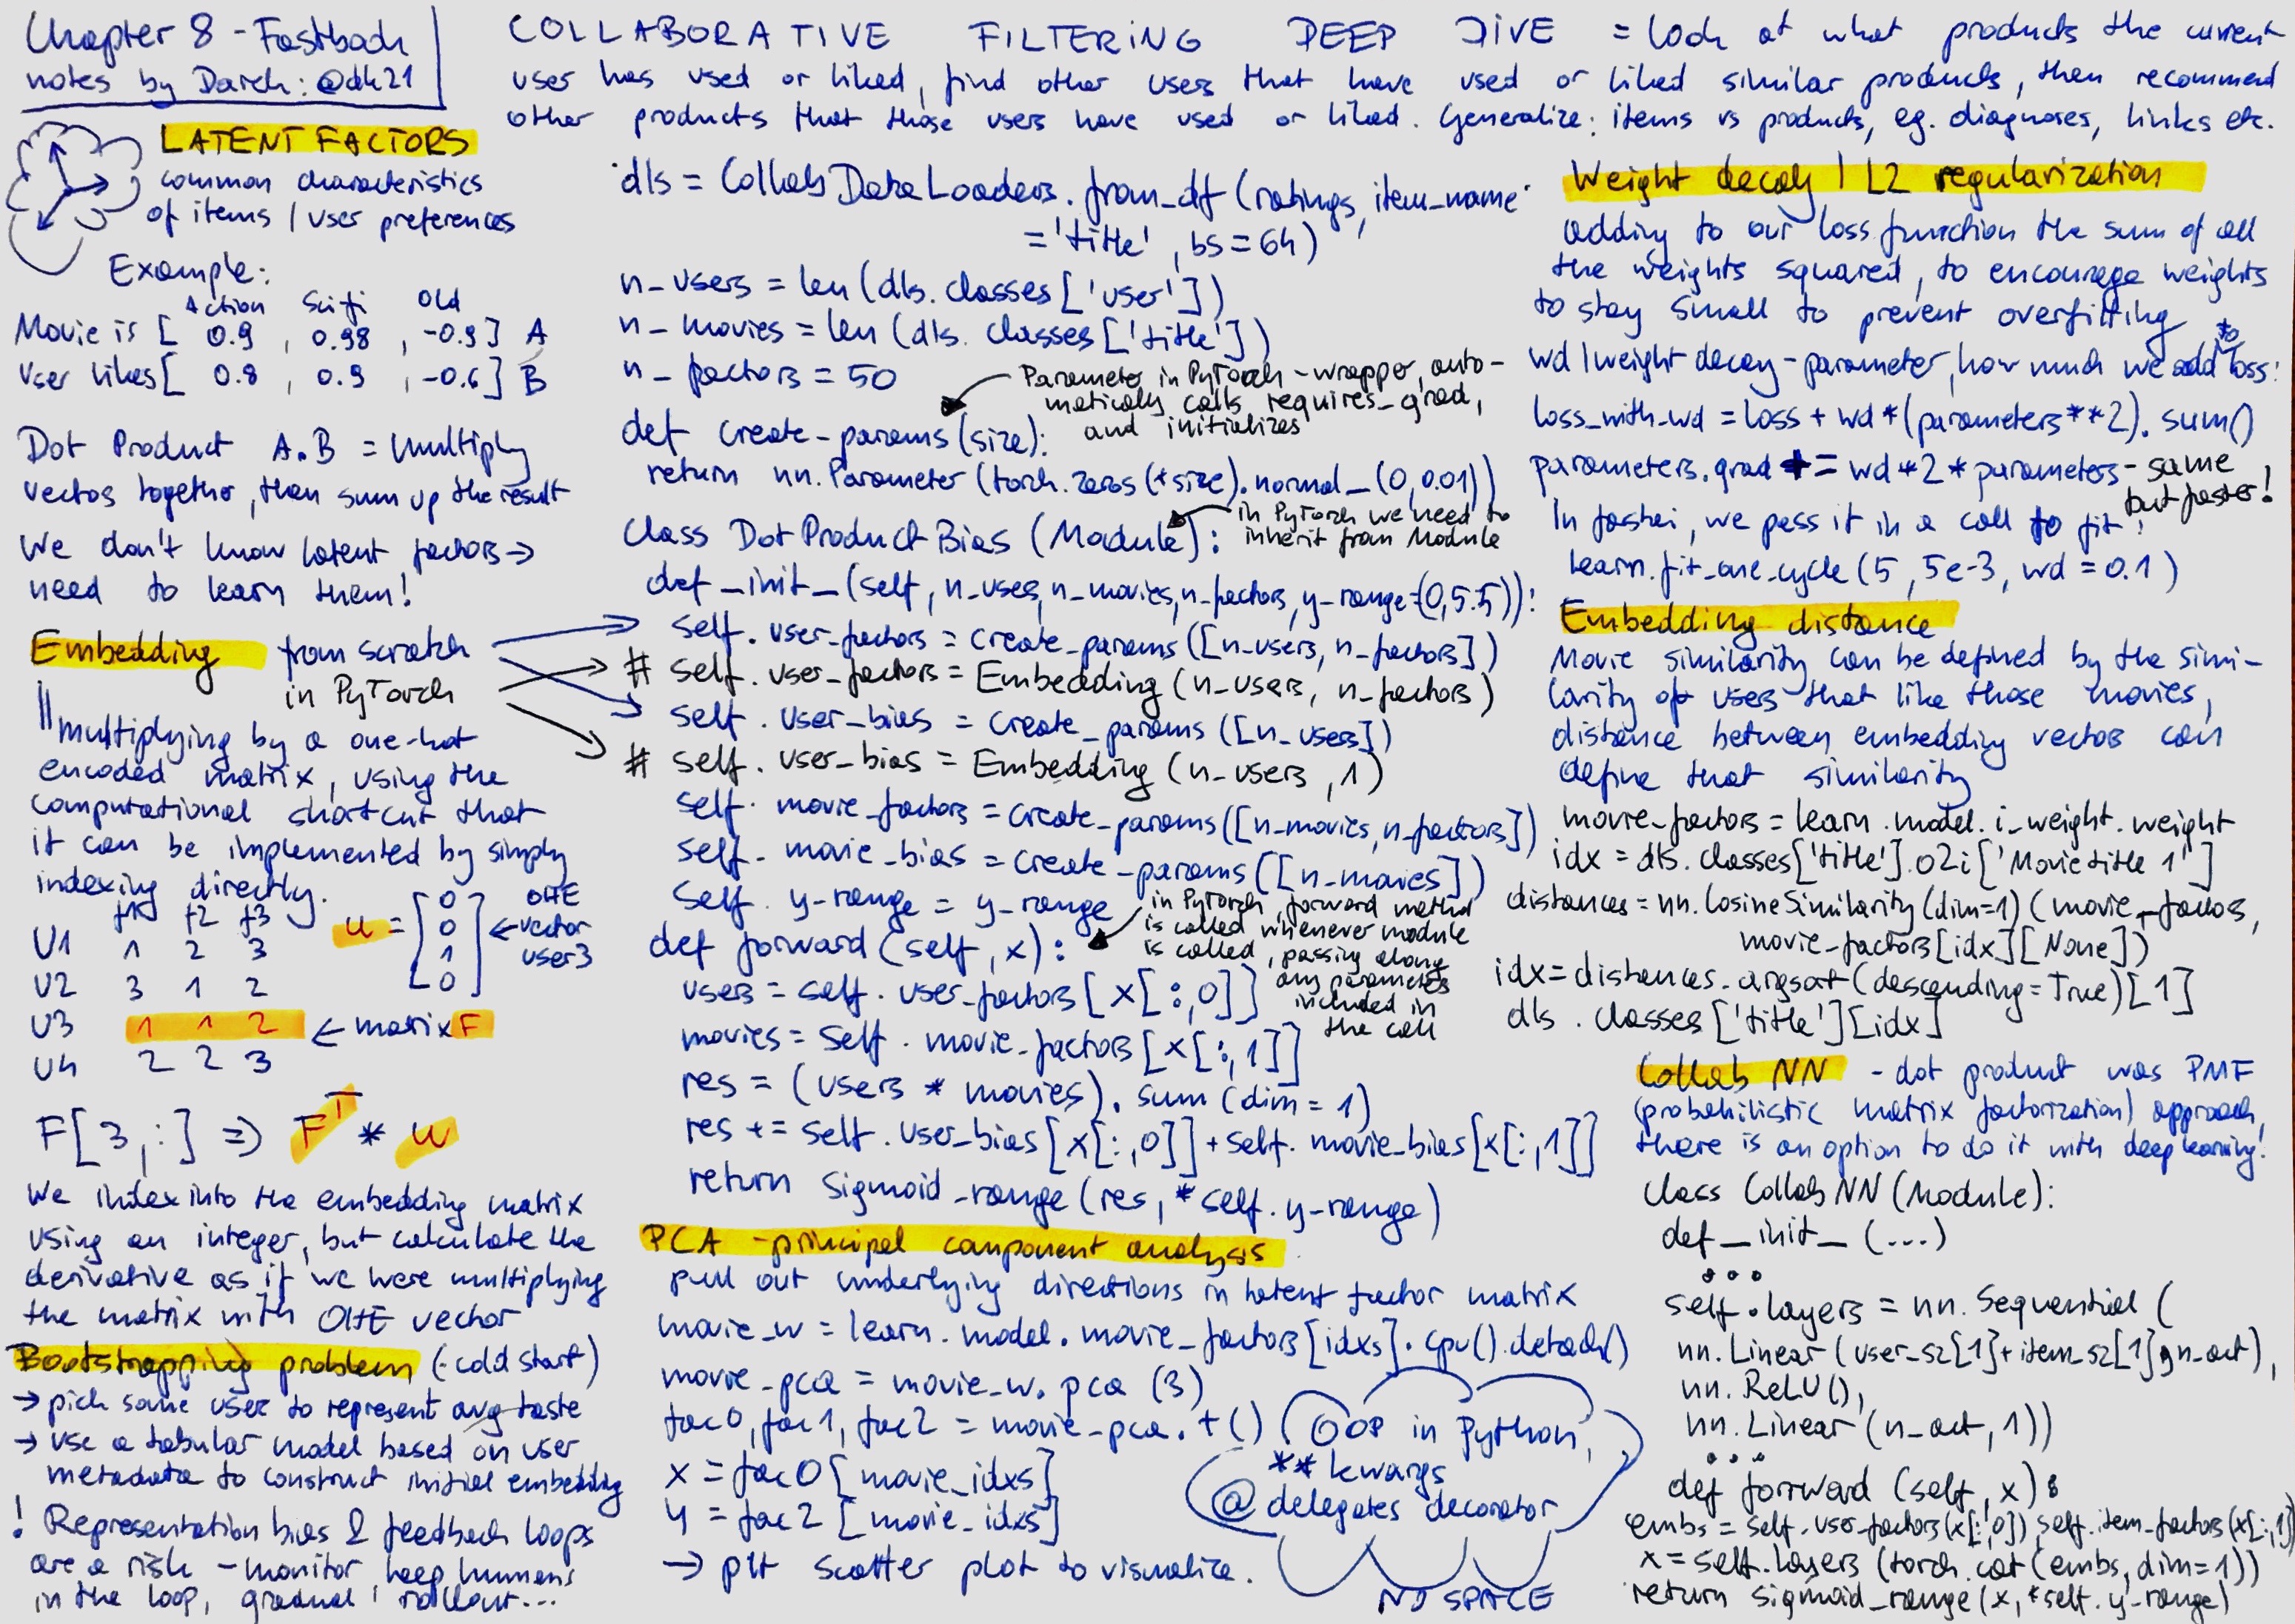 Chapter 8 - Fastbook
notes by Darek: @dk21
COLLABORATIVE FILTERING DEEP DIVE = look at what products the current
user has used or liked, find other users that have used or liked similar products, then recommend
other products that those users have used or liked. Generalize: items vs products, eg. diagnoses, links etc.
LATENT FACTORS
common characteristics
of items / user preferences
Example:
Action Scifi Old
Movie is [ 0.9 , 0.98 , -0.9 ] A
User likes [ 0.8 , 0.9 , -0.6 ] B
Dot Product A.B = multiply
vectos together, then sum up the result
We don't know latent factors →
need to learn them!
Embedding from scratch
in PyTorch
|| multiplying by a one-hot
encoded matrix, using the
computational shortcut that
it can be implemented by simply
indexing directly.
f1 f2 f3
U1 1 2 3
U2 3 1 2
U3 1 1 2 ← matrix F
U4 2 2 3
u = [ 0 0 1 0 ] ← OHE vector user3
F[3,:] => F^T * u
We index into the embedding matrix
using an integer, but calculate the
derivative as if we were multiplying
the matrix with OHE vector
Bootstrapping problem (-cold start)
→ pick some user to represent avg taste
→ use a tabular model based on user
metadata to construct initial embedding
! Representation bias & feedback loops
are a risk - monitor, keep humans
in the loop, gradual rollout...
dls = CollabDataLoaders.from_df(ratings, item_name
='title', bs=64)
n_users = len(dls.classes['user'])
n_movies = len(dls.classes['title'])
n_factors = 50
Parameter in PyTorch - wrapper, auto-
matically calls requires_grad,
and initializes
def create_params(size):
return nn.Parameter(torch.zeros(*size).normal_(0, 0.01))
class DotProductBias(Module):
in PyTorch we need to
inherit from Module
def _init_(self, n_users, n_movies, n_factors, y_range=(0,5.5)):
self.user_factors = create_params([n_users, n_factors])
# self.user_factors = Embedding(n_users, n_factors)
self.user_bias = create_params([n_users])
# self.user_bias = Embedding(n_users, 1)
self.movie_factors = create_params([n_movies, n_factors])
self.movie_bias = create_params([n_movies])
self.y_range = y_range
in PyTorch, forward method
is called whenever module
is called, passing along
any parameters
included in
the call
def forward(self, x):
users = self.user_factors[x[:,0]]
movies = self.movie_factors[x[:,1]]
res = (users * movies).sum(dim=1)
res += self.user_bias[x[:,0]] + self.movie_bias[x[:,1]]
return sigmoid_range(res, *self.y_range)
PCA - principal component analysis
pull out underlying directions in latent factor matrix
movie_w = learn.model.movie_factors[idxs].cpu().detach()
movie_pca = movie_w.pca(3)
fac0, fac1, fac2 = movie_pca.t()
x = fac0[movie_idxs]
y = fac2[movie_idxs]
→ plt scatter plot to visualize.
OOP in Python,
**kwargs
@delegates decorator
NO SPACE
Weight decay / L2 regularization
adding to our loss function the sum of all
the weights squared, to encourage weights
to stay small to prevent overfitting
wd / weight decay - parameter, how much we add to loss:
loss_with_wd = loss + wd*(parameters**2).sum()
parameters.grad += wd*2*parameters - same
but faster!
In fastai, we pass it in a call to fit:
learn.fit_one_cycle(5, 5e-3, wd=0.1)
Embedding distance
Movie similarity can be defined by the simi-
larity of users that like those movies,
distance between embedding vectors can
define that similarity
movie_factors = learn.model.i_weight.weight
idx = dls.classes['title'].o2i['Movie title 1']
distances = nn.CosineSimilarity(dim=1)(movie_factors,
movie_factors[idx][None])
idx = distances.argsort(descending=True)[1]
dls.classes['title'][idx]
Collab NN - dot product was PMF
(probabilistic matrix factorization) approach,
there is an option to do it with deep learning!
class CollabNN(Module):
def _init_(...)
...
self.layers = nn.Sequential(
nn.Linear(user_sz[1]+item_sz[1], n_act),
nn.ReLU(),
nn.Linear(n_act, 1))
...
def forward(self, x):
embs = self.user_factors(x[:,0]), self.item_factors(x[:,1])
x = self.layers(torch.cat(embs, dim=1))
return sigmoid_range(x, *self.y_range)